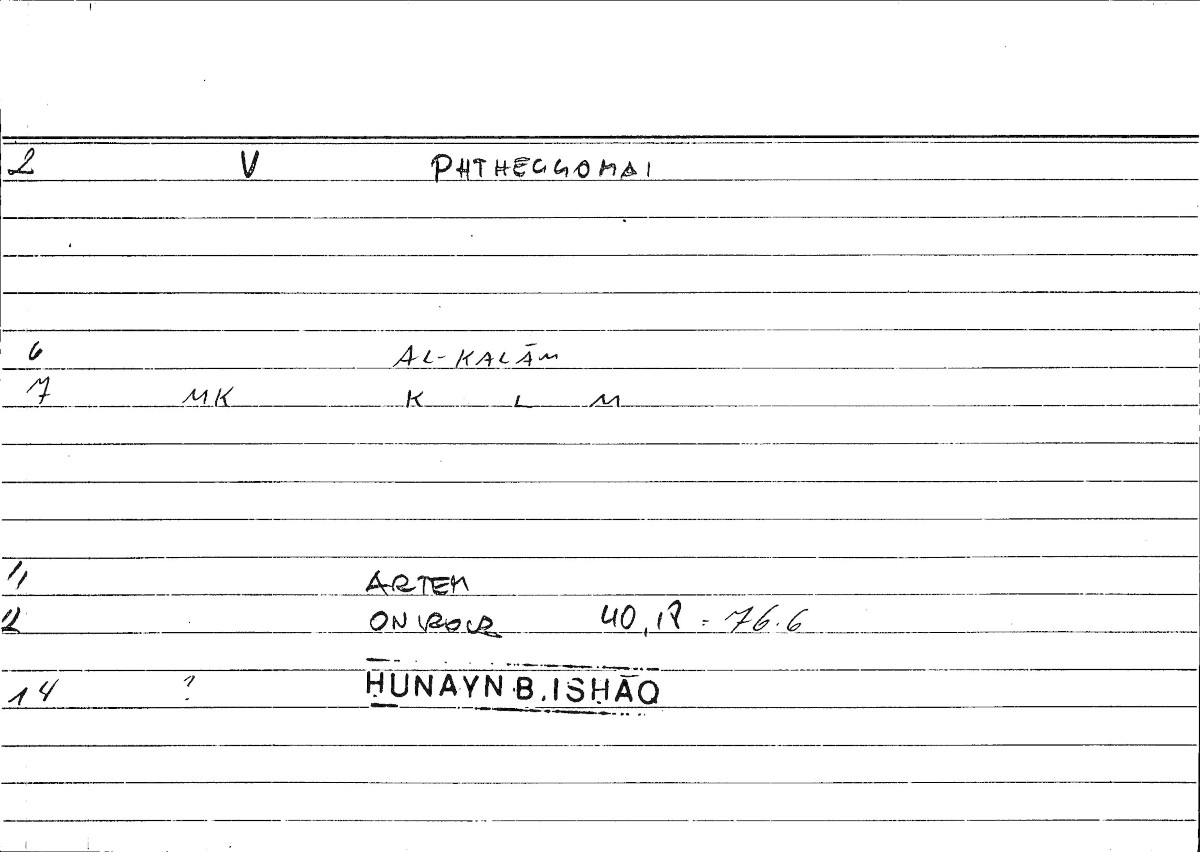 2 V PHTHEGGOMAI
6 AL-KALĀM
7 MK K L M
11 ARTEM
12 ONIROCR 40,17 = 76.6
14 ? ḤUNAYN B. ISḤĀQ